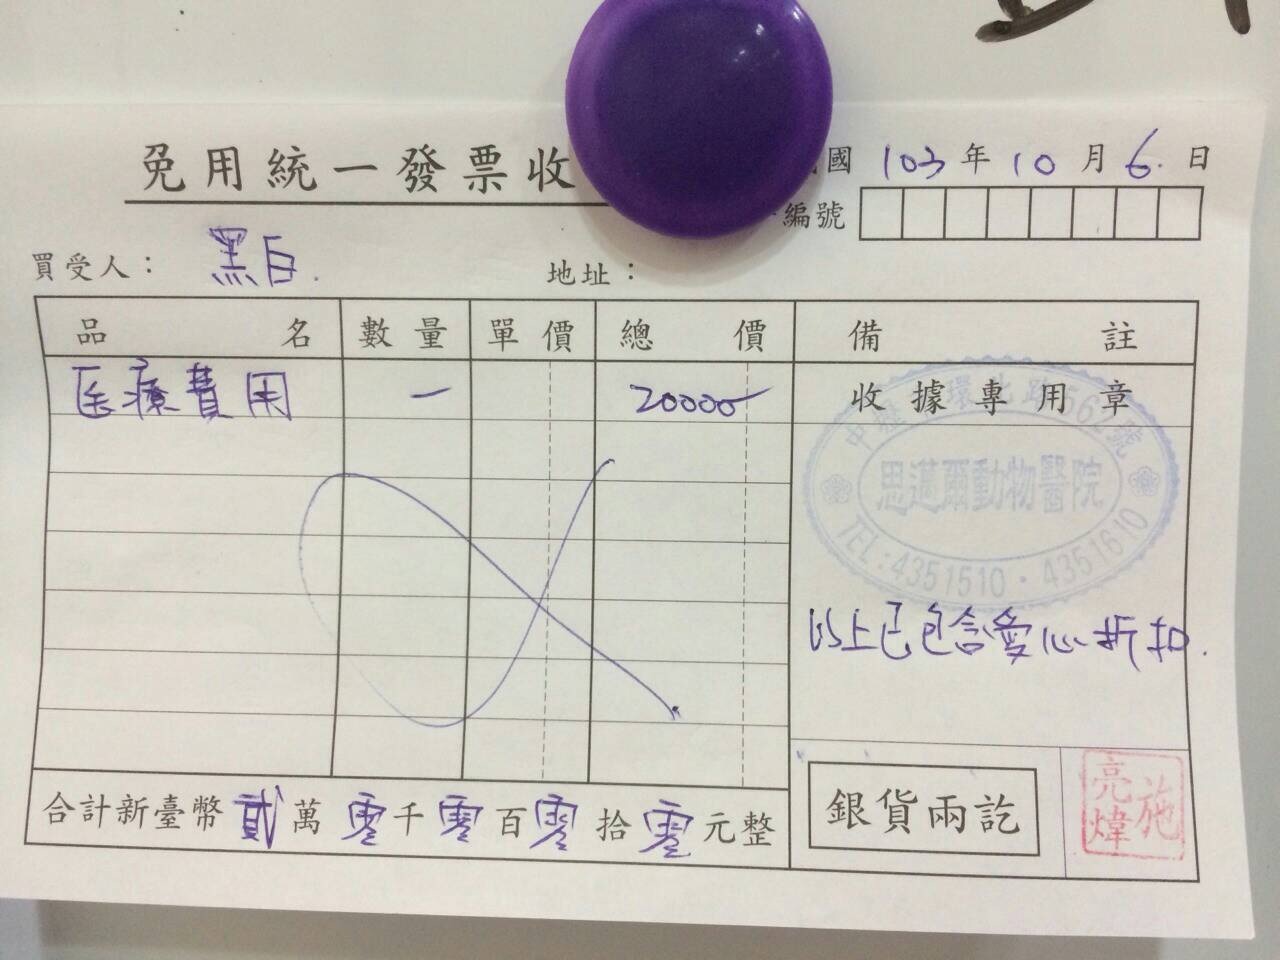 免用統一發票收
國 103 年 10 月 6 日
編號
買受人： 黑白.
地址：
品名 數量 單價 總價 備註
医療費用 一 20000
收據專用章
中壢 環北路562號
思邁爾動物醫院
TEL:4351510·4351610
以上已包含愛心折扣.
合計新臺幣貳萬零千零百零拾零元整
銀貨兩訖
施亮煒